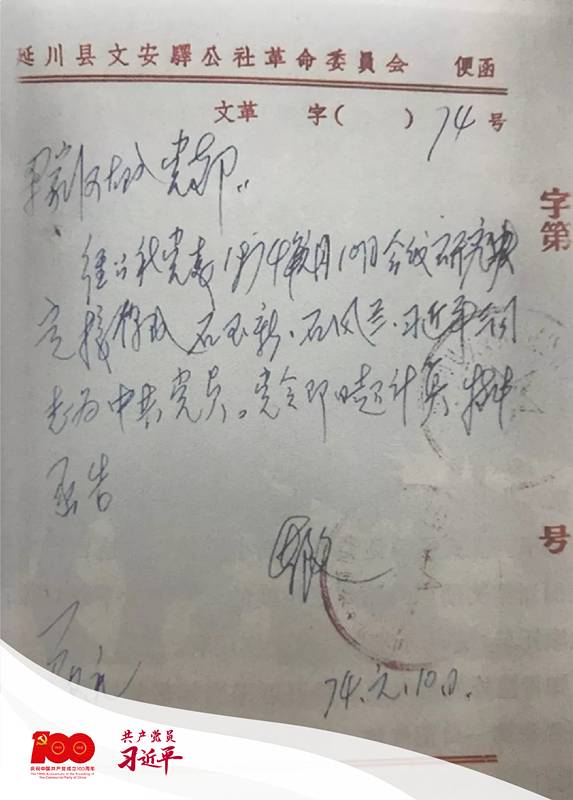 延川县文安驛公社革命委員會 便函
文革 字( ) 74 号
党
字第
经公社党委1974年元月10日会议研究决
定接 石玉新、石风兰、习近平
志为中共党员。党令即日起计算,特此
函告
号
74.元.10日.
100
庆祝中国共产党成立100周年
The 100th Anniversary of the Founding of
The Communist Party of China
共产党员
习近平